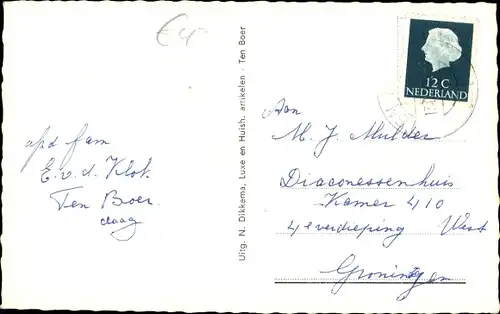 €4-
afd fam
E. v. d. Klok.
Ten Boer.
Uitg. N. Dikkema, Luxe en Huish. artikelen - Ten Boer
12 C
NEDERLAND
Aan
M. J. Mulder
Diaconessenhuis
Kamer 410
4e verdieping West
Groningen